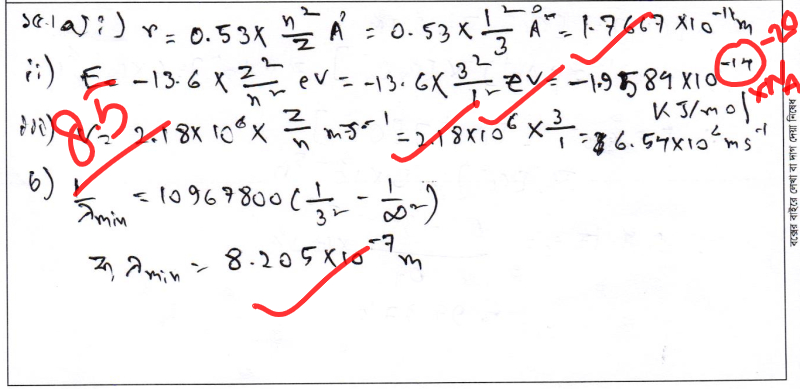 i) r = 0.53 × n²/Z Å = 0.53 × 1²/3 Å = 1.7667 × 10⁻¹¹ m
ii) E = -13.6 × Z²/n² eV = -13.6 × 3²/1² eV = -1.9584 × 10⁻¹⁴
-20
×NA
KJ/mol
8.5
iii) V = 2.18 × 10⁶ × Z/n ms⁻¹ = 2.18 × 10⁶ × 3/1 = 6.54 × 10⁶ ms⁻¹
b) 1/λmin = 10967800 (1/3² - 1/∞²)
বা, λmin = 8.205 × 10⁻⁷ m
বক্সের বাইরে লেখা বা দাগ দেয়া নিষেধ